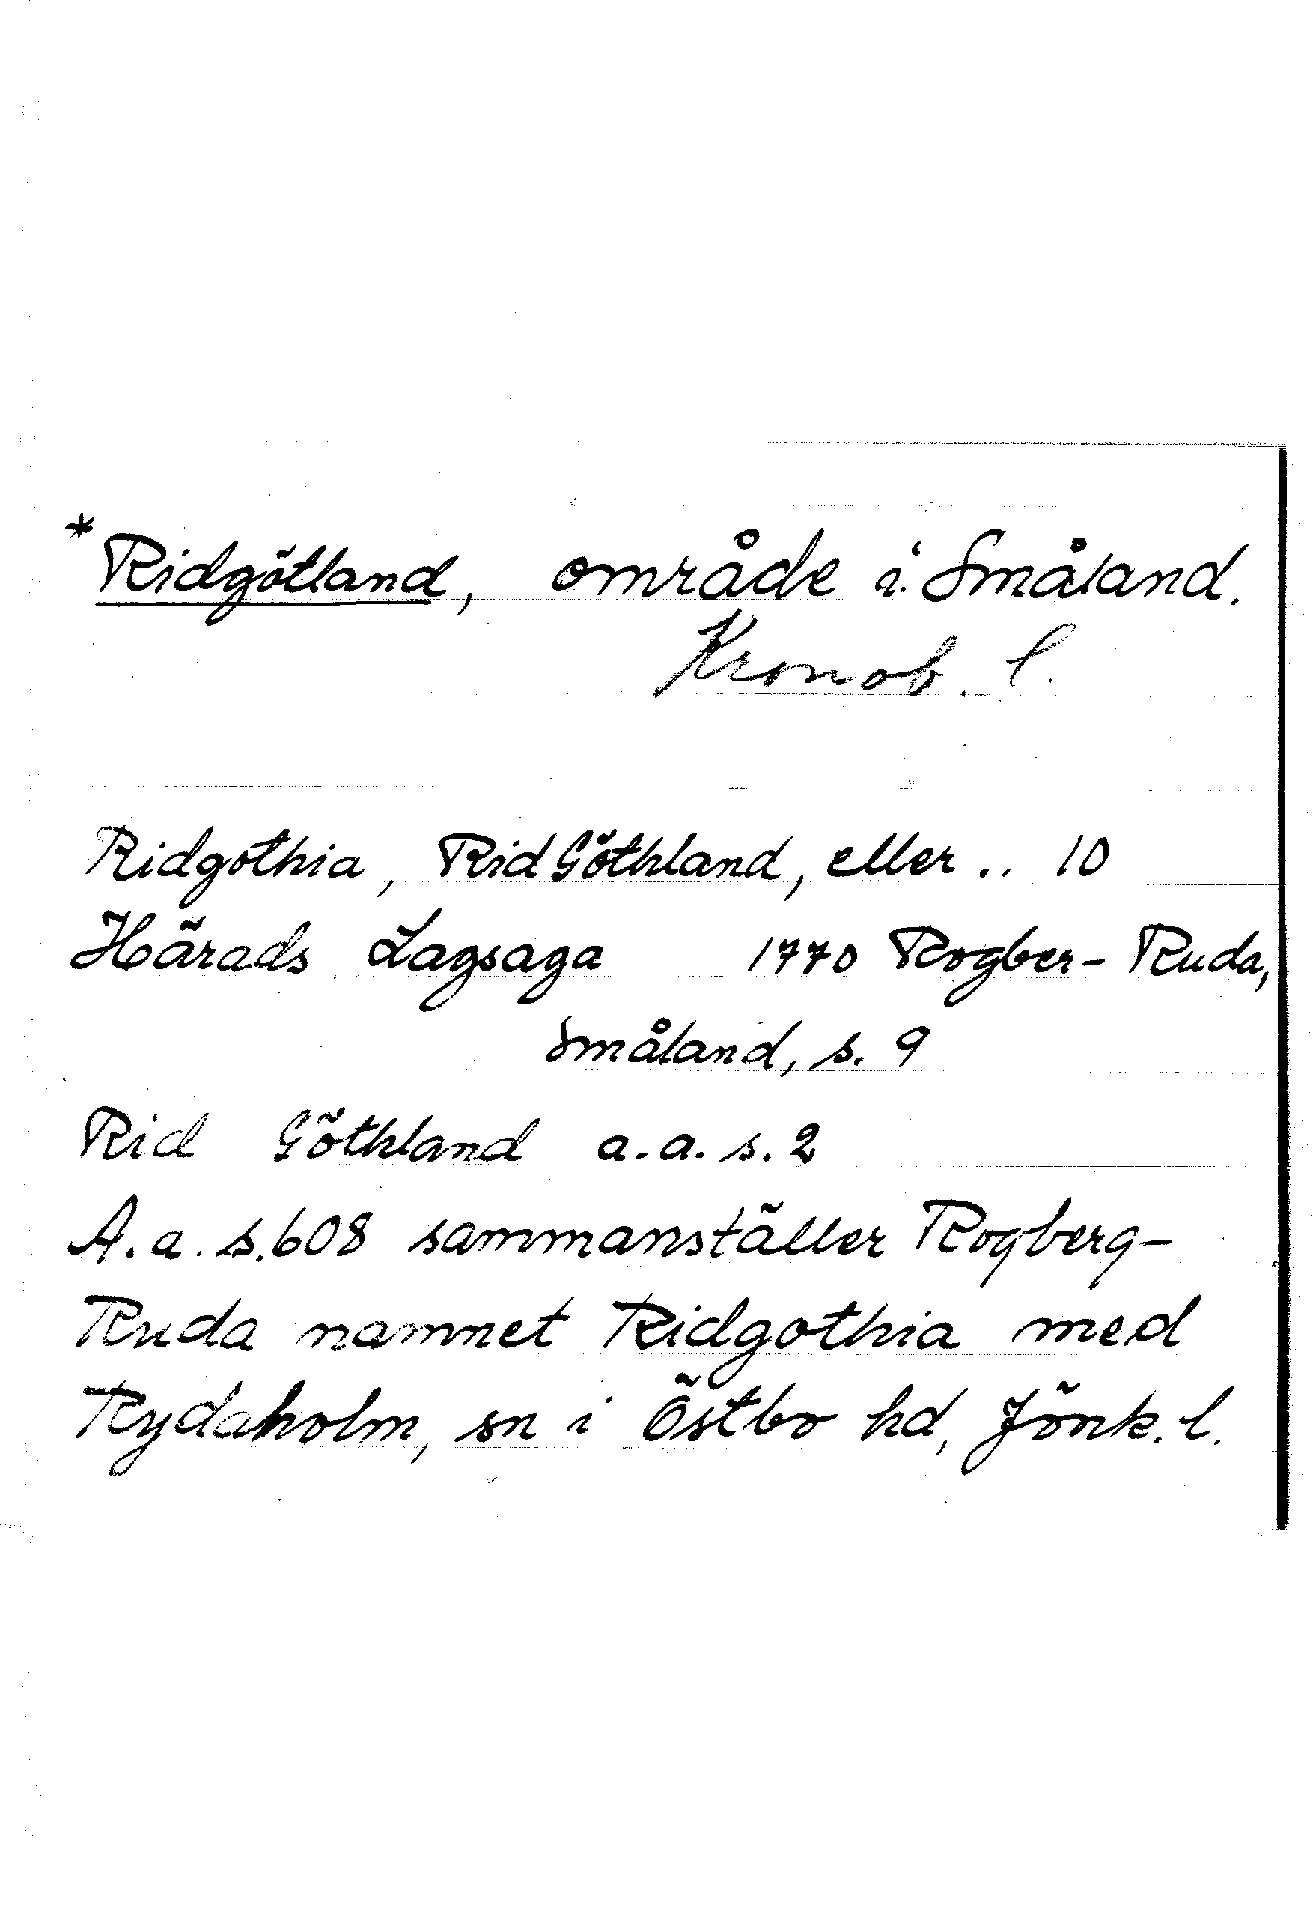 *Ridgötland, område i Småland.
Kronob. l.
Ridgothia, Rid Göthland, eller .. 10
Härads Lagsaga 1770 Rogber- Ruda,
Småland, s. 9
Rid Göthland a.a. s. 2
A.a. s. 608 sammanställer Rogberg-
Ruda namnet Ridgothia med
Rydaholm, sn i Östbo hd, Jönk. l.